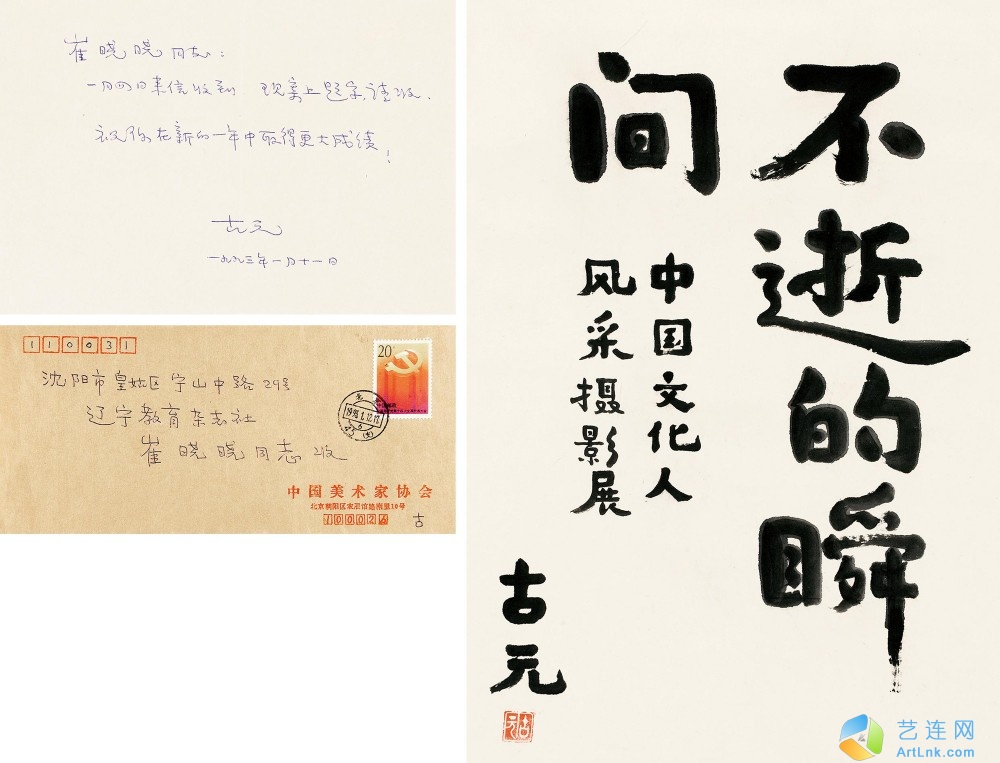 崔晓晓同志：
一月四日来信收到 现寄上题字，请收．
祝你在新的一年中取得更大成绩！
古元
一九九三年一月十一日
110031
沈阳市皇姑区宁山中路29号
辽宁教育杂志社
崔晓晓同志收
20
中国美术家协会
北京朝阳区农展馆北里10号
100026
古
不逝的瞬
间
中国文化人
风采摄影展
古元
古元
艺连网
ArtLnk.com